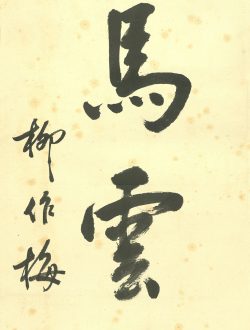 馬雲
柳作梅